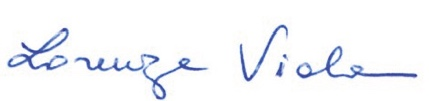 Lorenza Viola